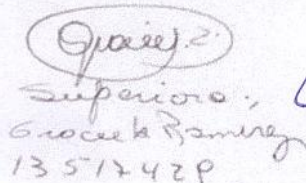 Superiora:
Graciela Ramirez
13517428